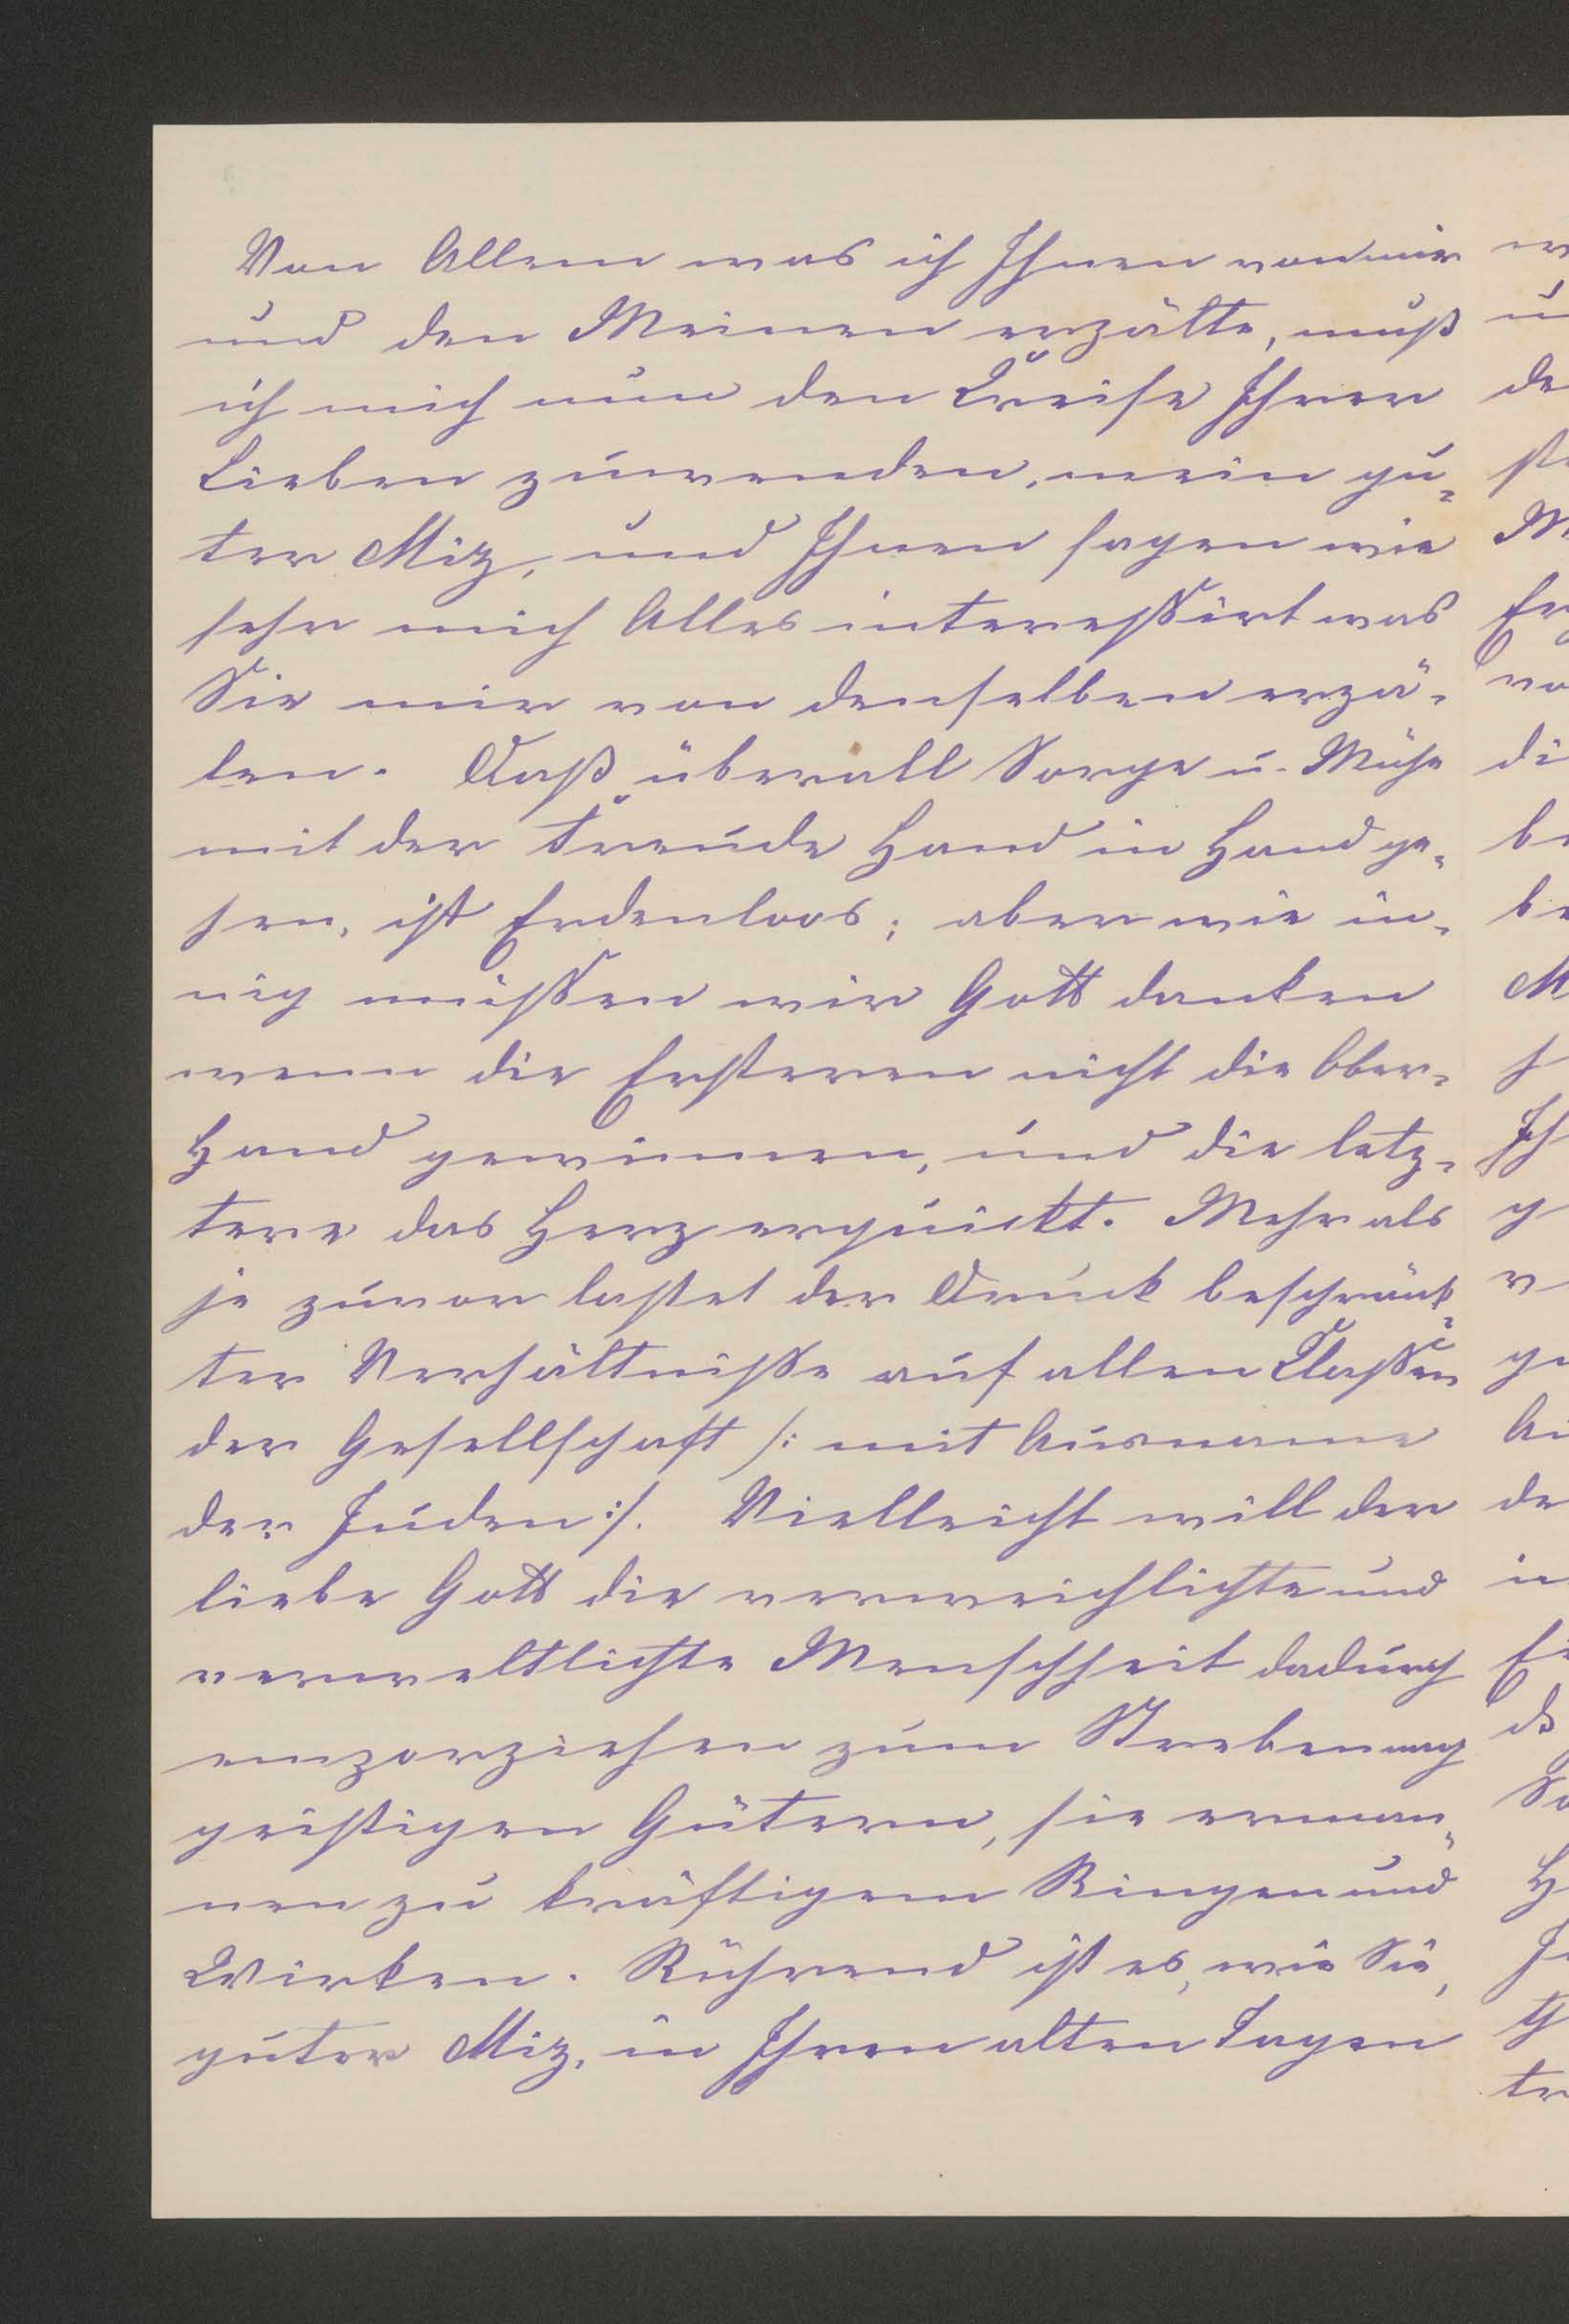 Von Allem was ich Ihnen von mir
und den Meinen erzälte, muß
ich mich nun dem Kreise Ihrer
Lieben zuwenden, mein gu-
ter Miz, und Ihnen sagen wie
sehr mich Alles interessirt was
Sie mir von denselben erzä-
len. Daß überall Sorge u. Mühe
mit der Freude Hand in Hand ge-
hen, ist Erdenloos; aber wie in-
nig müssen wir Gott danken
wenn die Ersteren nicht die Ober-
Hand gewinnen, und die letz-
tere das Herz erquickt. Mehr als
je zuvor lastet der Druck beschränk-
ter Verhältnisse auf allen Classen
der Gesellschaft /: mit Ausname
der Juden :/. Vielleicht will der
liebe Gott die verweichlichte und
verweltlichte Menschheit dadurch
emporziehen zum Streben nach
geistigen Gütern, sie erman-
nen zu kräftigem Ringen und
Wirken. Rührend ist es, wie Sie,
guter Miz, in Ihren alten Tagen